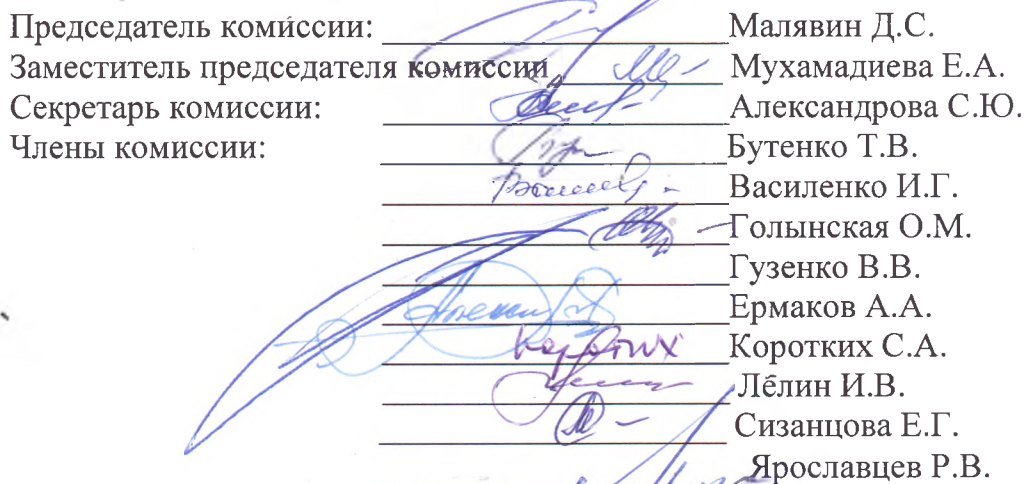 Председатель комиссии: Малявин Д.С.
Заместитель председателя комиссии Мухамадиева Е.А.
Секретарь комиссии: Александрова С.Ю.
Члены комиссии: Бутенко Т.В.
Василенко И.Г.
Голынская О.М.
Гузенко В.В.
Ермаков А.А.
Коротких Коротких С.А.
Лёлин И.В.
Сизанцова Е.Г.
Ярославцев Р.В.